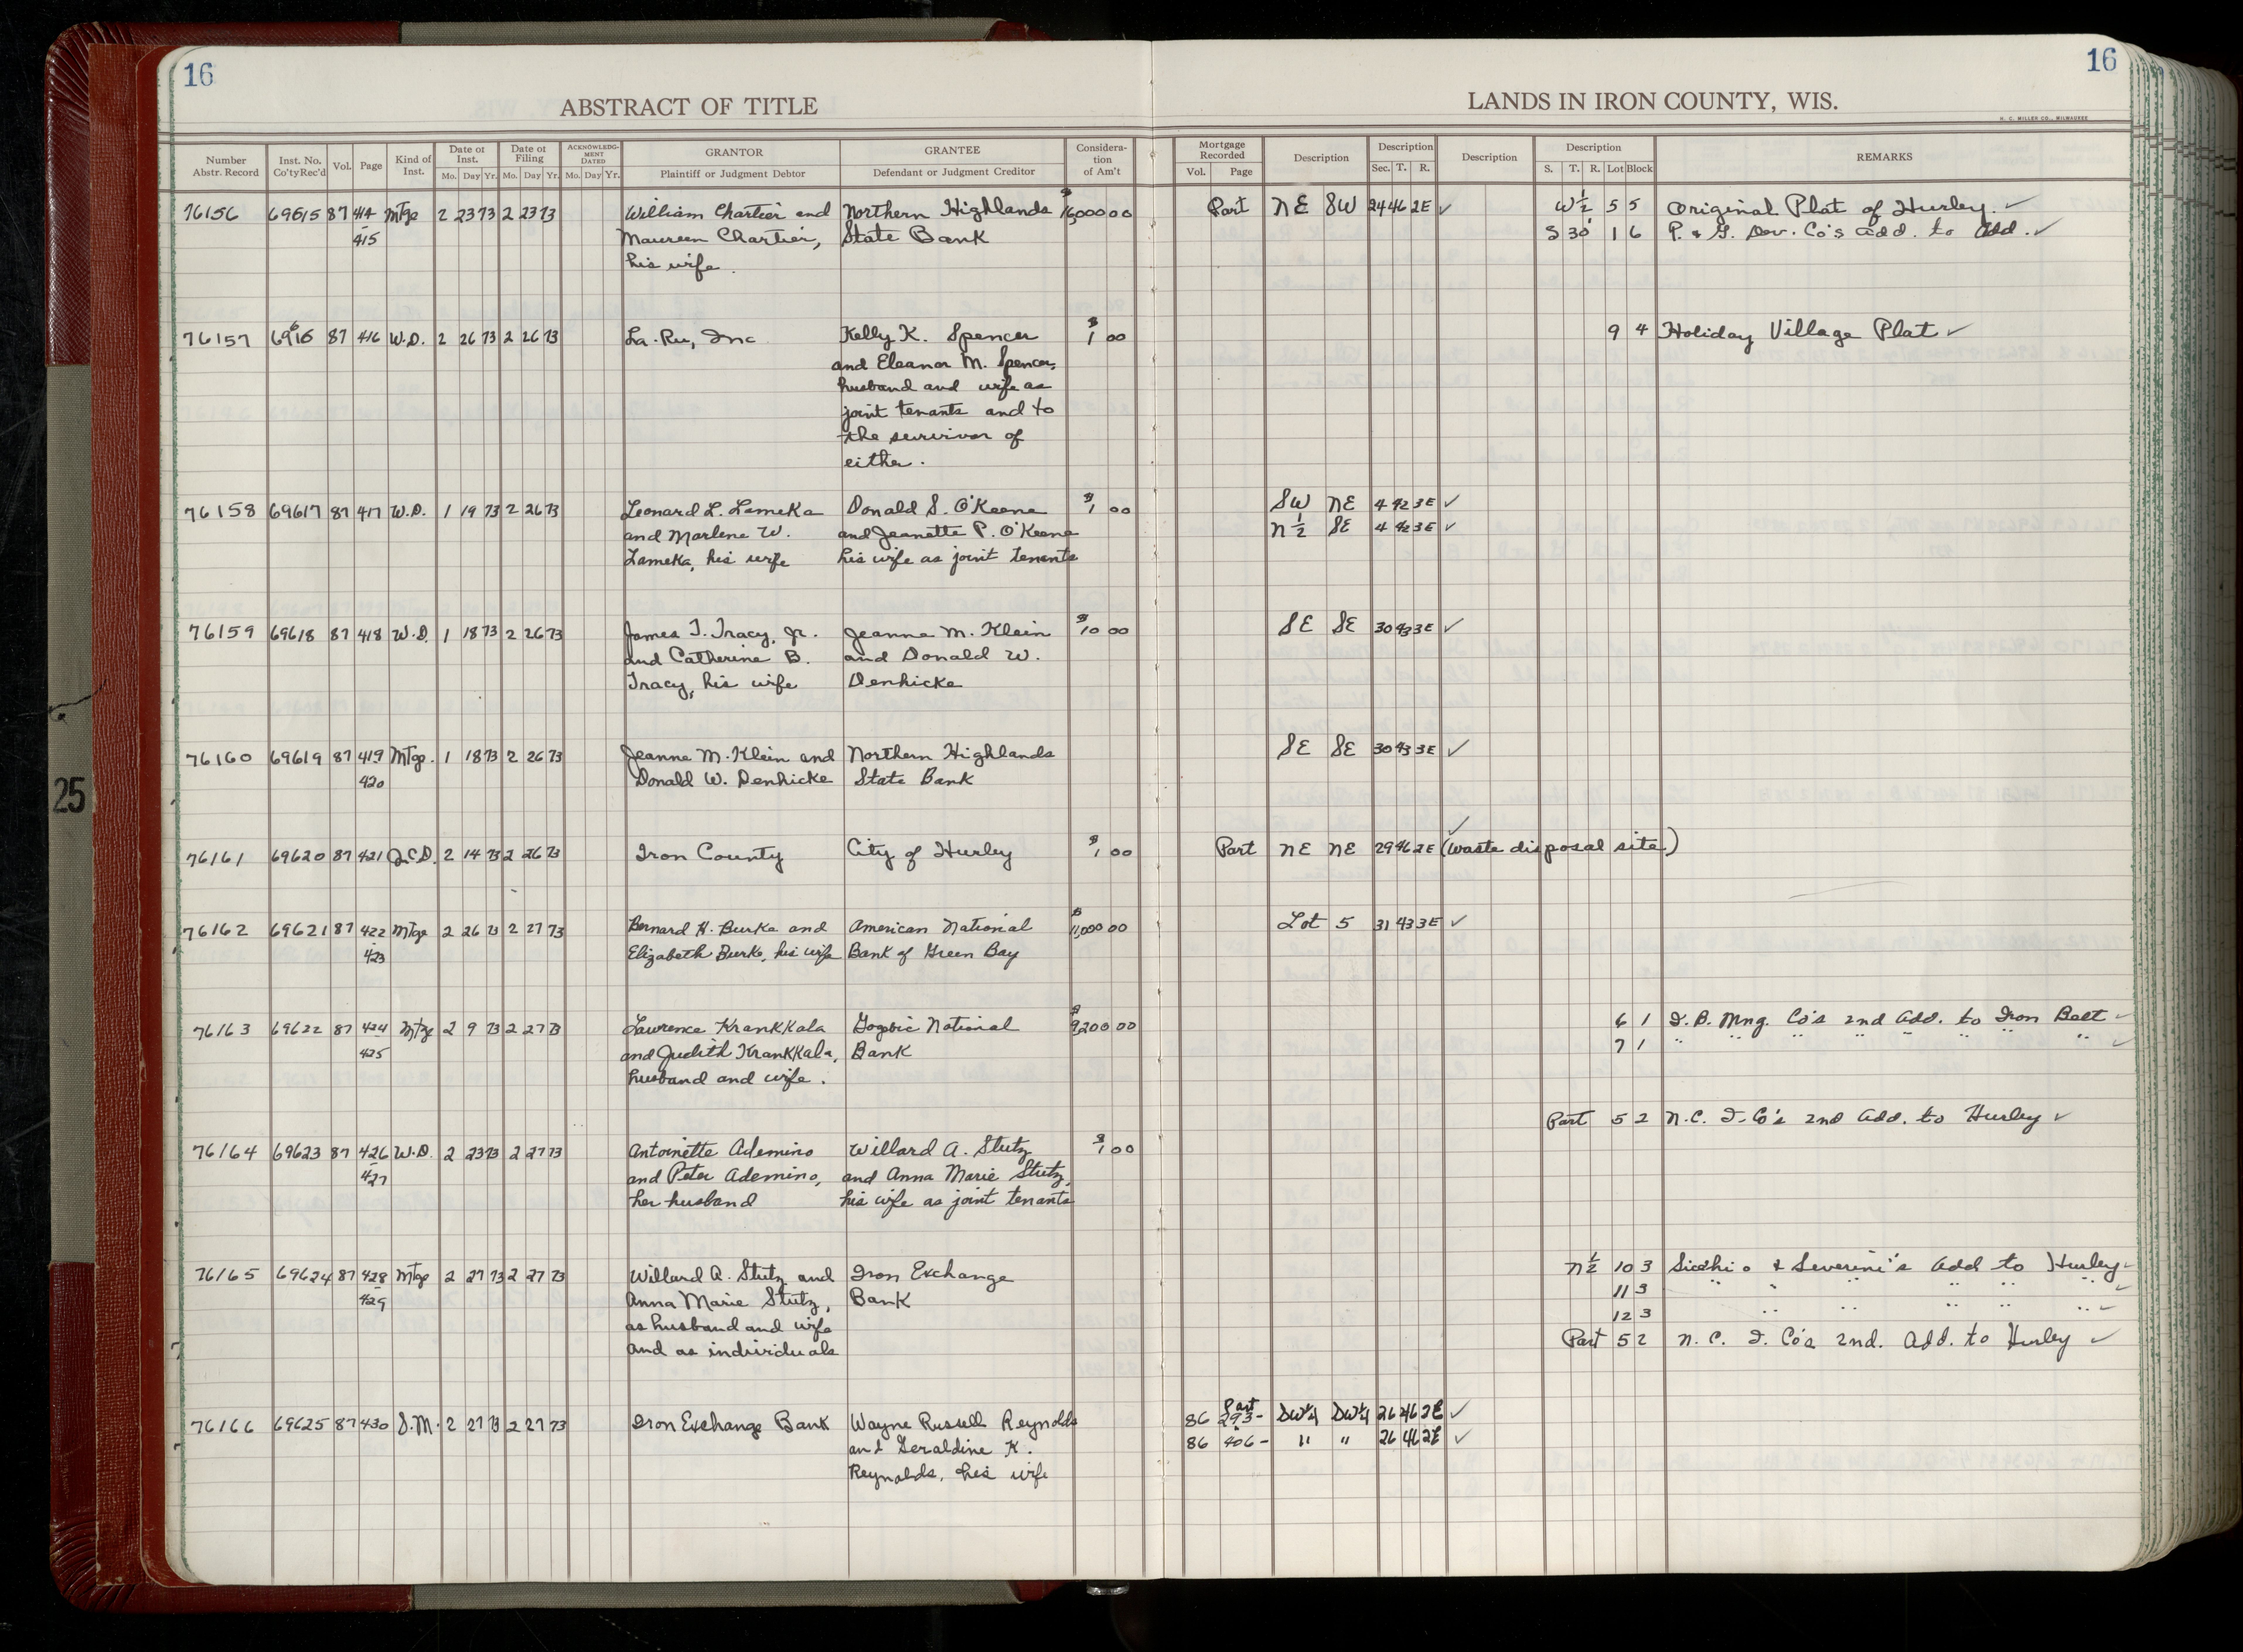 16
16
ABSTRACT OF TITLE
LANDS IN IRON COUNTY, WIS.
H. C. MILLER CO., MILWAUKEE
Number Abstr. Record Inst. No. Co'ty Rec'd Vol. Page Kind of Inst. Date of Inst. Mo. Day Yr. Date of Filing Mo. Day Yr. ACKNOWLEDGMENT DATED Mo. Day Yr. GRANTOR Plaintiff or Judgment Debtor GRANTEE Defendant or Judgment Creditor Consideration of Am't Mortgage Recorded Vol. Page Description Description Sec. T. R. Description Description S. T. R. Lot Block REMARKS
76156 69615 87 414 Mtge 2 23 73 2 23 73 William Chartier and Northern Highlands $16,000 00 Part NE SW 24 46 2E ✓ W½ 5 5 Original Plat of Hurley. ✓
415 Maureen Chartier, State Bank S 30' 1 6 P. & G. Dev. Co's Add. to Add. ✓
his wife.
76157 69616 87 416 W.D. 2 26 73 2 26 73 La-Ru, Inc Kelly K. Spencer $1 00 9 4 Holiday Village Plat ✓
and Eleanor M. Spencer,
husband and wife as
joint tenants and to
the survivor of
either.
76158 69617 87 417 W.D. 1 19 73 2 26 73 Leonard L. Lameka Donald S. O'Keene $1 00 SW NE 4 42 3E ✓
and Marlene W. and Jeanette P. O'Keene N½ SE 4 42 3E ✓
Lameka, his wife his wife as joint tenants
76159 69618 87 418 W.D. 1 18 73 2 26 73 James T. Tracy, Jr. Jeanne M. Klein $10 00 SE SE 30 43 3E ✓
and Catherine B. and Donald W.
Tracy, his wife Denhicke
76160 69619 87 419 Mtge. 1 18 73 2 26 73 Jeanne M. Klein and Northern Highlands SE SE 30 43 3E ✓
420 Donald W. Denhicke State Bank
76161 69620 87 421 Q.C.D. 2 14 73 2 26 73 Iron County City of Hurley $1 00 Part NE NE 29 46 2E (waste disposal site) ✓
76162 69621 87 422 Mtge 2 26 73 2 27 73 Bernard H. Burke and American National $11,000 00 Lot 5 31 43 3E ✓
423 Elizabeth Burke, his wife Bank of Green Bay
76163 69622 87 424 Mtge 2 9 73 2 27 73 Lawrence Krankkala Gogebic National $9200 00 6 1 I.B. Mng. Co's 2nd Add. to Iron Belt ✓
425 and Judith Krankkala, Bank 7 1 " " " " " " " ✓
husband and wife.
Part 5 2 N.C. I. Co's 2nd Add. to Hurley ✓
76164 69623 87 426 W.D. 2 23 73 2 27 73 Antoinette Ademino Willard A. Stutz $1 00
427 and Peter Ademino, and Anna Marie Stutz,
her husband his wife as joint tenants
76165 69624 87 428 Mtge 2 27 73 2 27 73 Willard A. Stutz and Iron Exchange N½ 10 3 & Severini's Add to Hurley ✓
429 Anna Marie Stutz, Bank 11 3 " " " " " " ✓
as husband and wife 12 3 " " " " " ✓
and as individuals Part 5 2 N. C. I. Co's 2nd. Add. to Hurley ✓
76166 69625 87 430 S.M. 2 27 73 2 27 73 Iron Exchange Bank Wayne Russell Reynolds 86 Part 293- SW¼ SW¼ 26 46 2E ✓
and Geraldine K. 86 406- " " 26 46 2E ✓
Reynolds, his wife
25